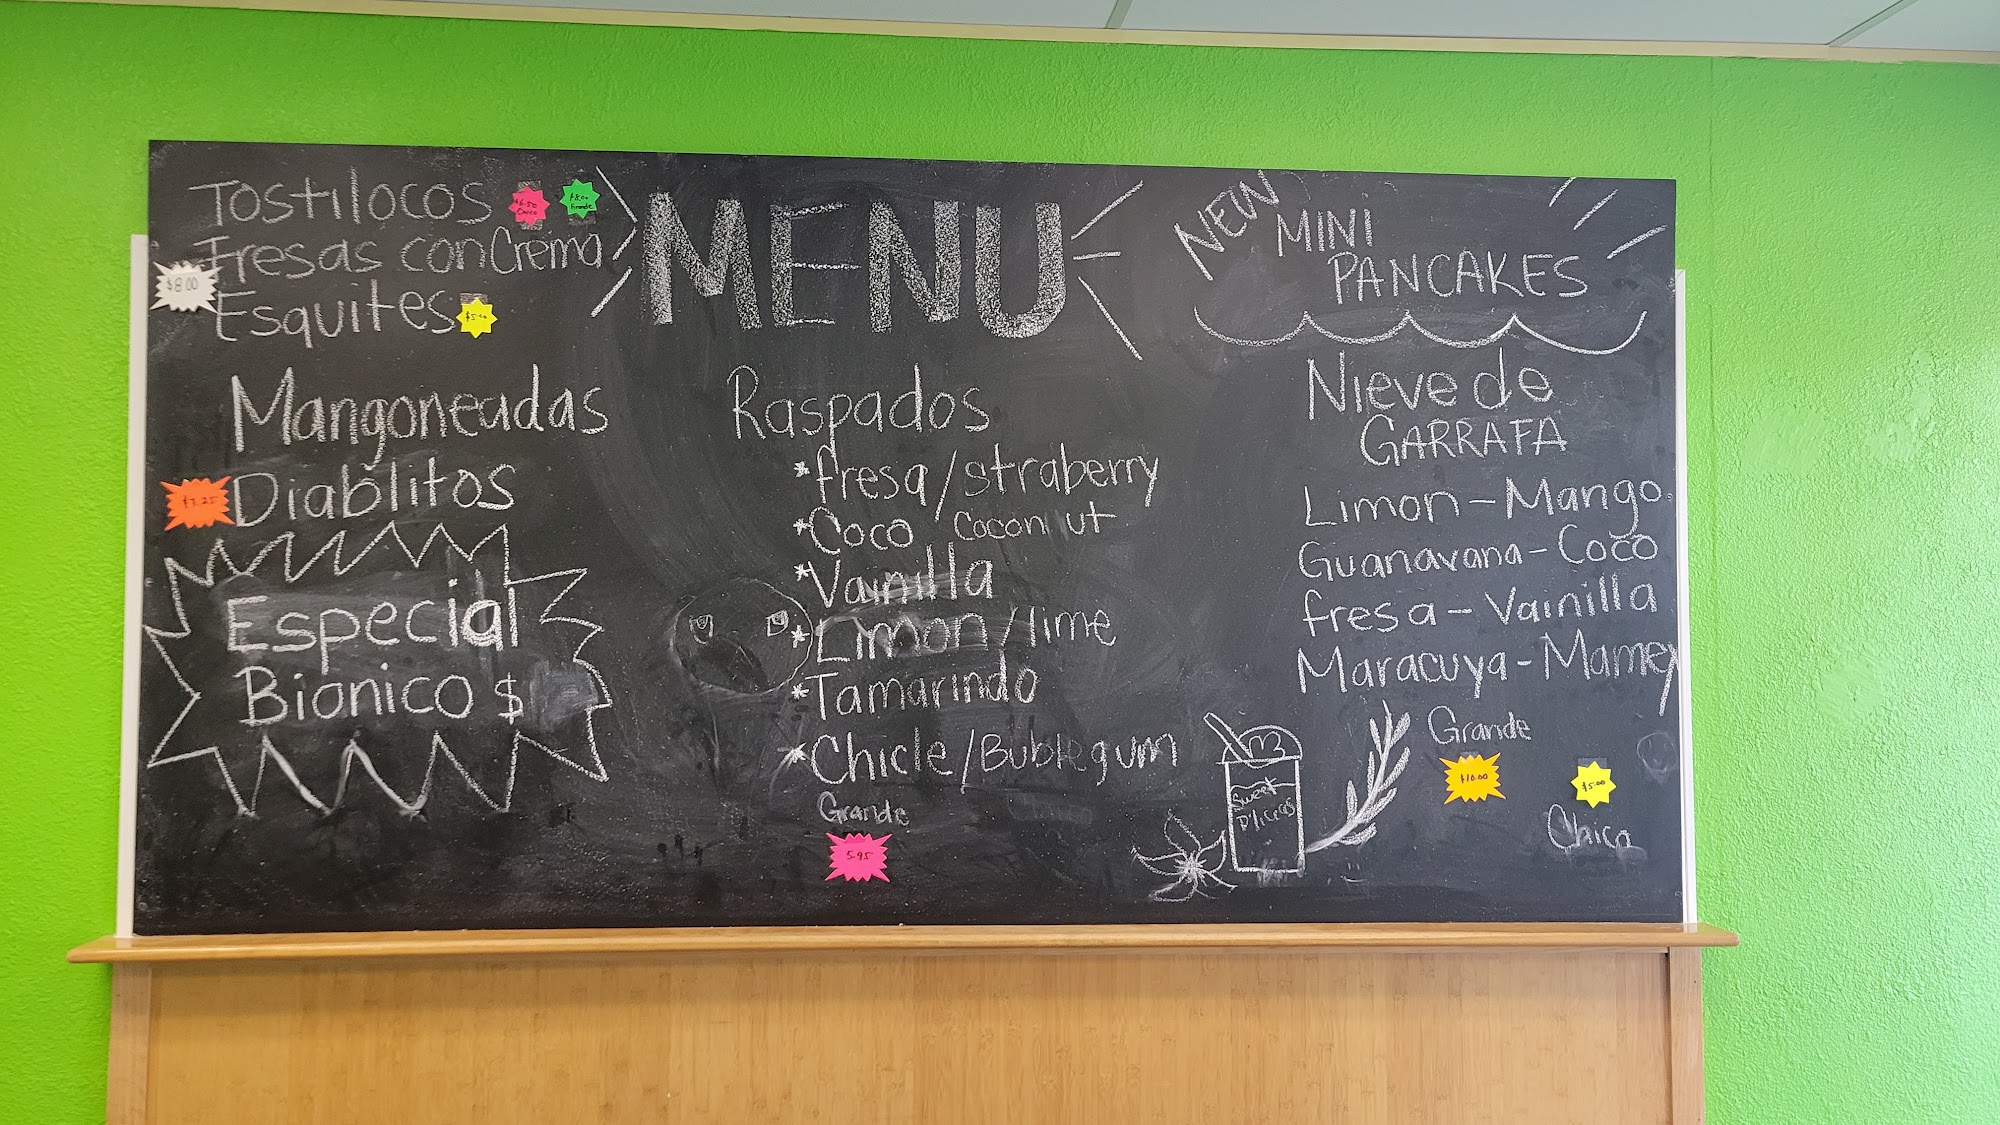 Tostilocos $6.50 Chico $8.00 Grande
Fresas con Crema
$8.00
Esquites $5.00
MENU
NEW MINI
PANCAKES
Mangoneadas
$7.25 Diablitos
Especial
Bionico $
Raspados
*fresa/straberry
*Coco Coconut
*Vainilla
*Limon/lime
*Tamarindo
*Chicle/Bublegum
Grande
5.95
Nieve de
GARRAFA
Limon-Mango
Guanavana-Coco
fresa-Vainilla
Maracuya-Mamey
Grande
$10.00
$5.00
Chico
Sweet
D'licias